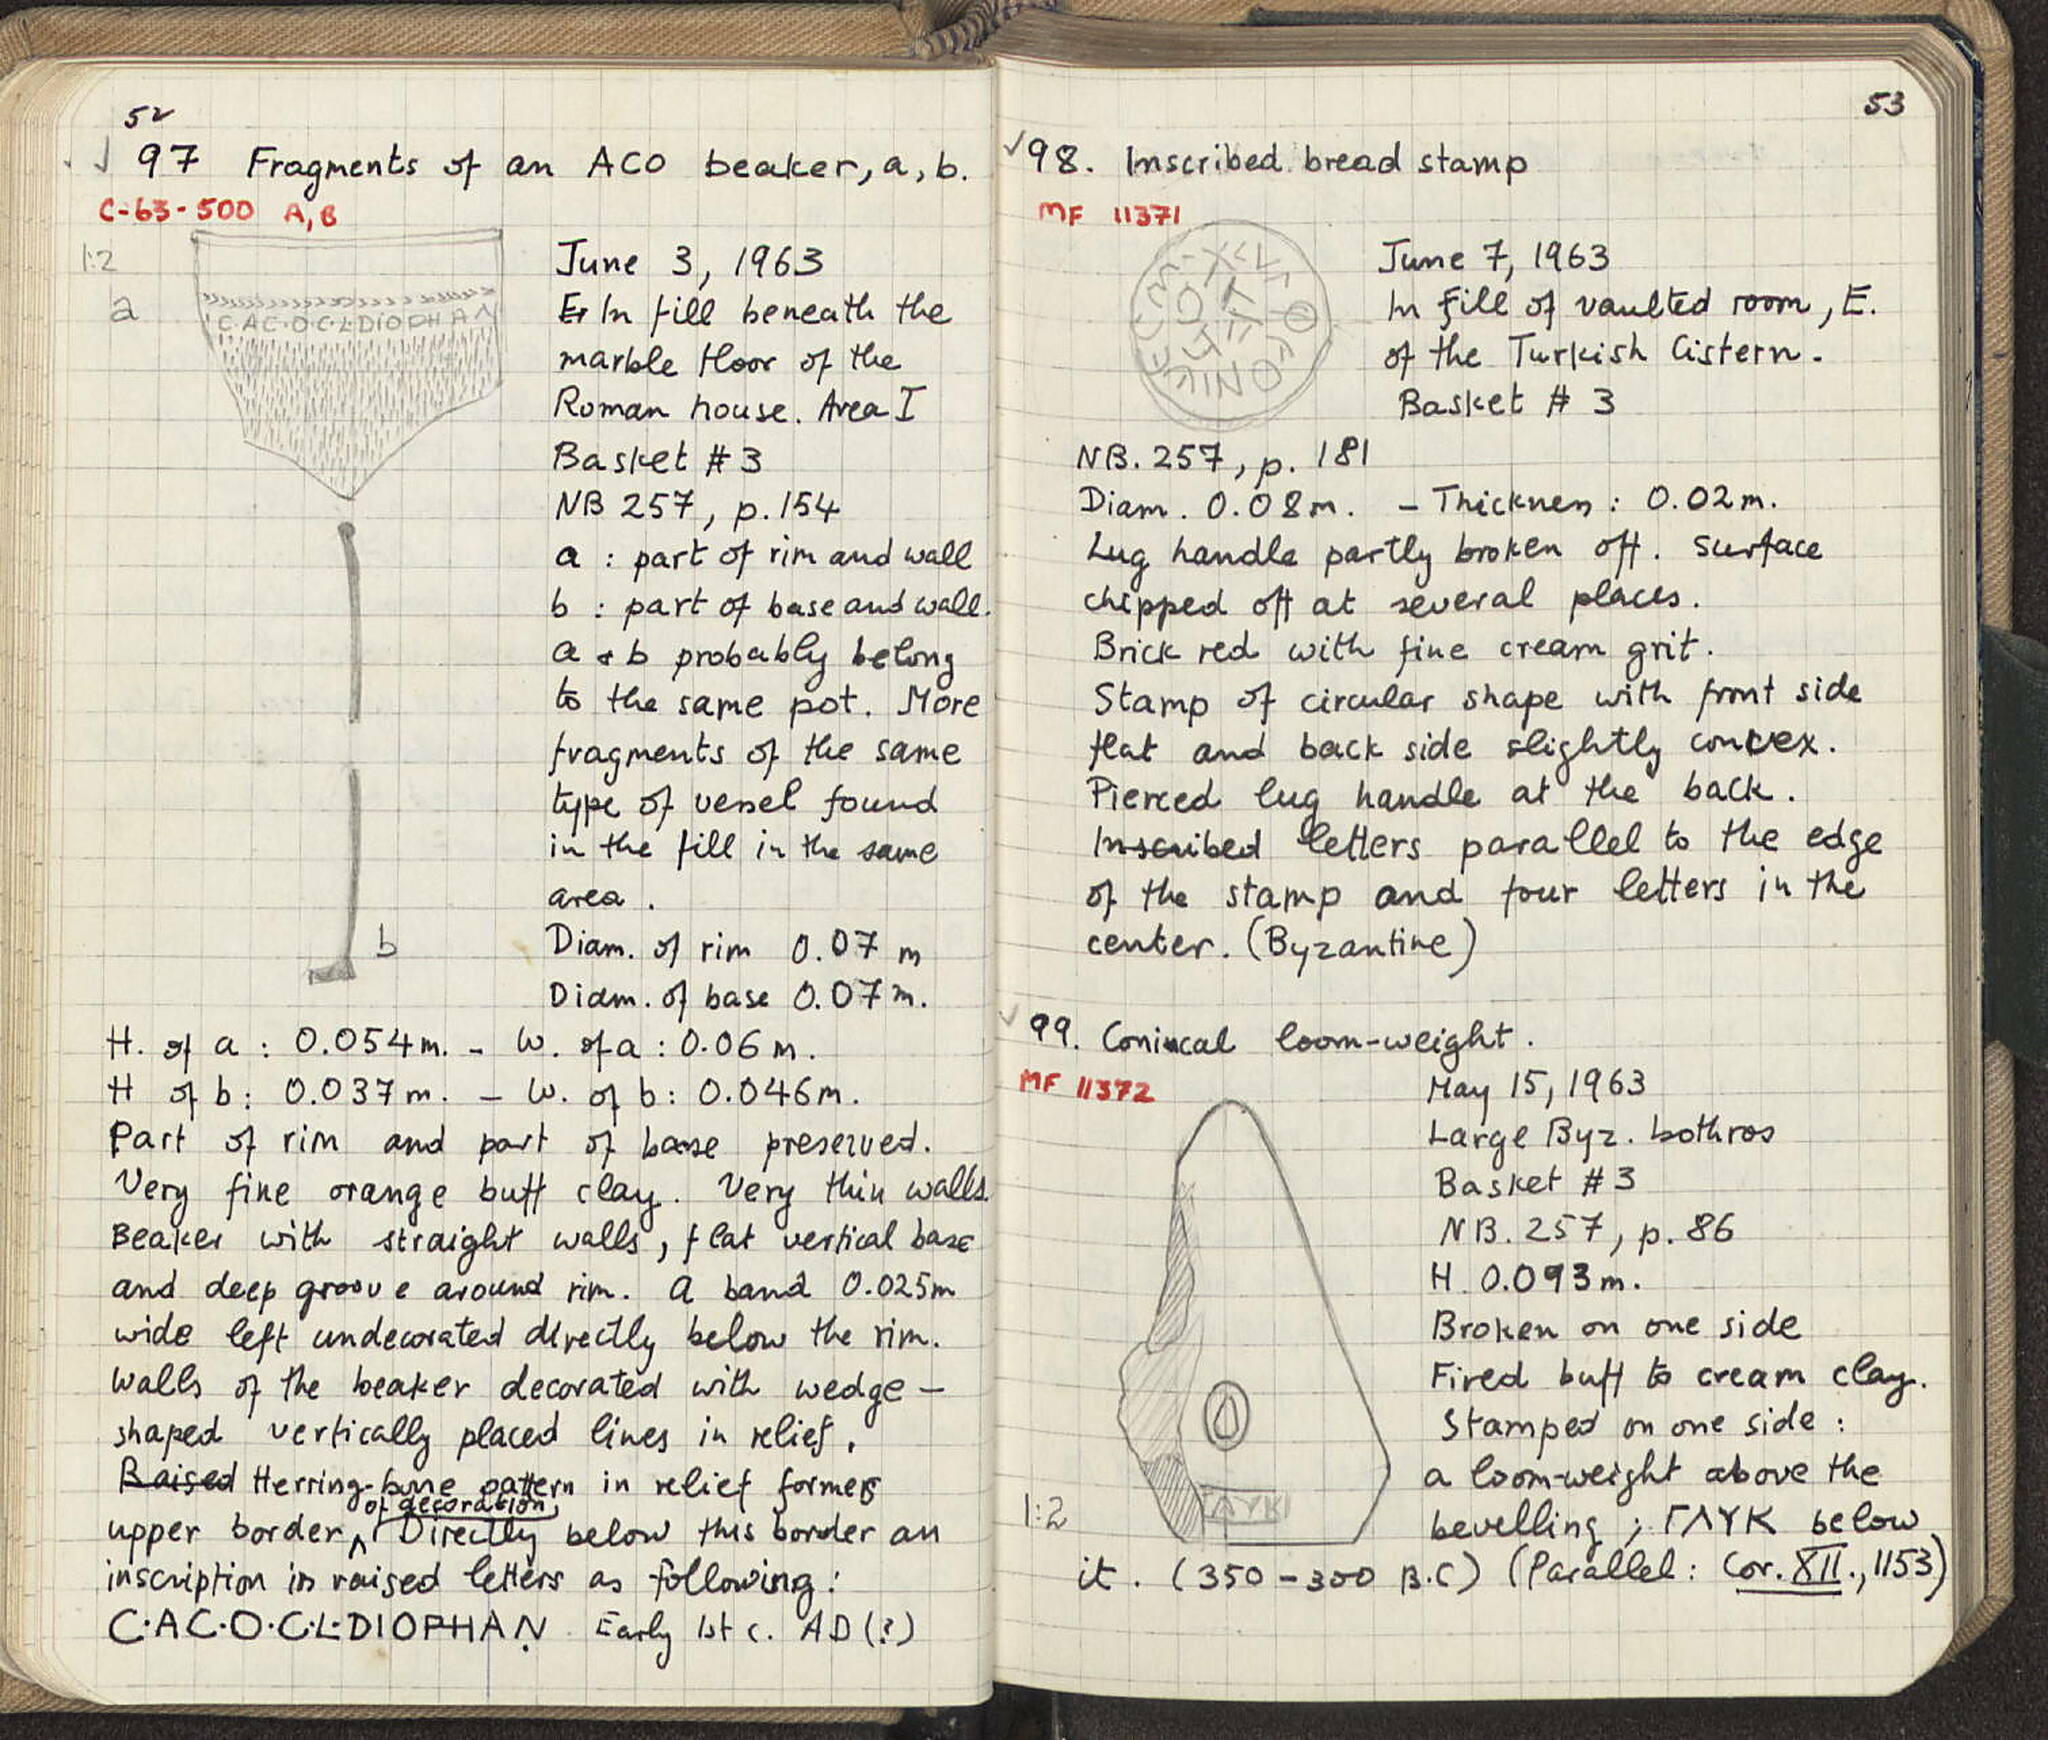 52
97 Fragments of an ACO beaker, a, b.
C-63-500 A, B
1:2
a
C·AC·O·C·L·DIOPHAN
June 3, 1963
Er In fill beneath the
marble floor of the
Roman house. Area I
Basket # 3
NB 257, p. 154
a : part of rim and wall
b : part of base and wall.
a + b probably belong
to the same pot. More
fragments of the same
type of vessel found
in the fill in the same
area.
b
Diam. of rim 0.07 m
Diam. of base 0.07 m.
H. of a : 0.054 m. - W. of a : 0.06 m.
H of b : 0.037 m. - W. of b : 0.046 m.
Part of rim and part of base preserved.
Very fine orange buff clay. Very thin walls.
Beaker with straight walls, flat vertical base
and deep groove around rim. A band 0.025m
wide left undecorated directly below the rim.
Walls of the beaker decorated with wedge-
shaped vertically placed lines in relief.
Raised Herring-bone pattern in relief formes
of decoration.
upper border Directly below this border an
inscription in raised letters as following:
C·AC·O·C·L·DIOPHAN Early 1st c. AD (?)
53
98. Inscribed bread stamp
MF 11371
June 7, 1963
In fill of vaulted room, E.
of the Turkish Cistern.
Basket # 3
NB. 257, p. 181
Diam. 0.08m. - Thickness : 0.02 m.
Lug handle partly broken off. Surface
chipped off at several places.
Brick red with fine cream grit.
Stamp of circular shape with front side
flat and back side slightly convex.
Pierced lug handle at the back.
Inscribed letters parallel to the edge
of the stamp and four letters in the
center. (Byzantine)
99. Conical loom-weight.
MF 11372
May 15, 1963
Large Byz. bothros
Basket # 3
NB. 257, p. 86
H. 0.093 m.
Broken on one side
Fired buff to cream clay.
Stamped on one side :
a loom-weight above the
1:2
ΓΛΥΚ
bevelling ; ΓΛΥΚ below
it. (350 - 300 B.C) (Parallel : Cor. XII., 1153)